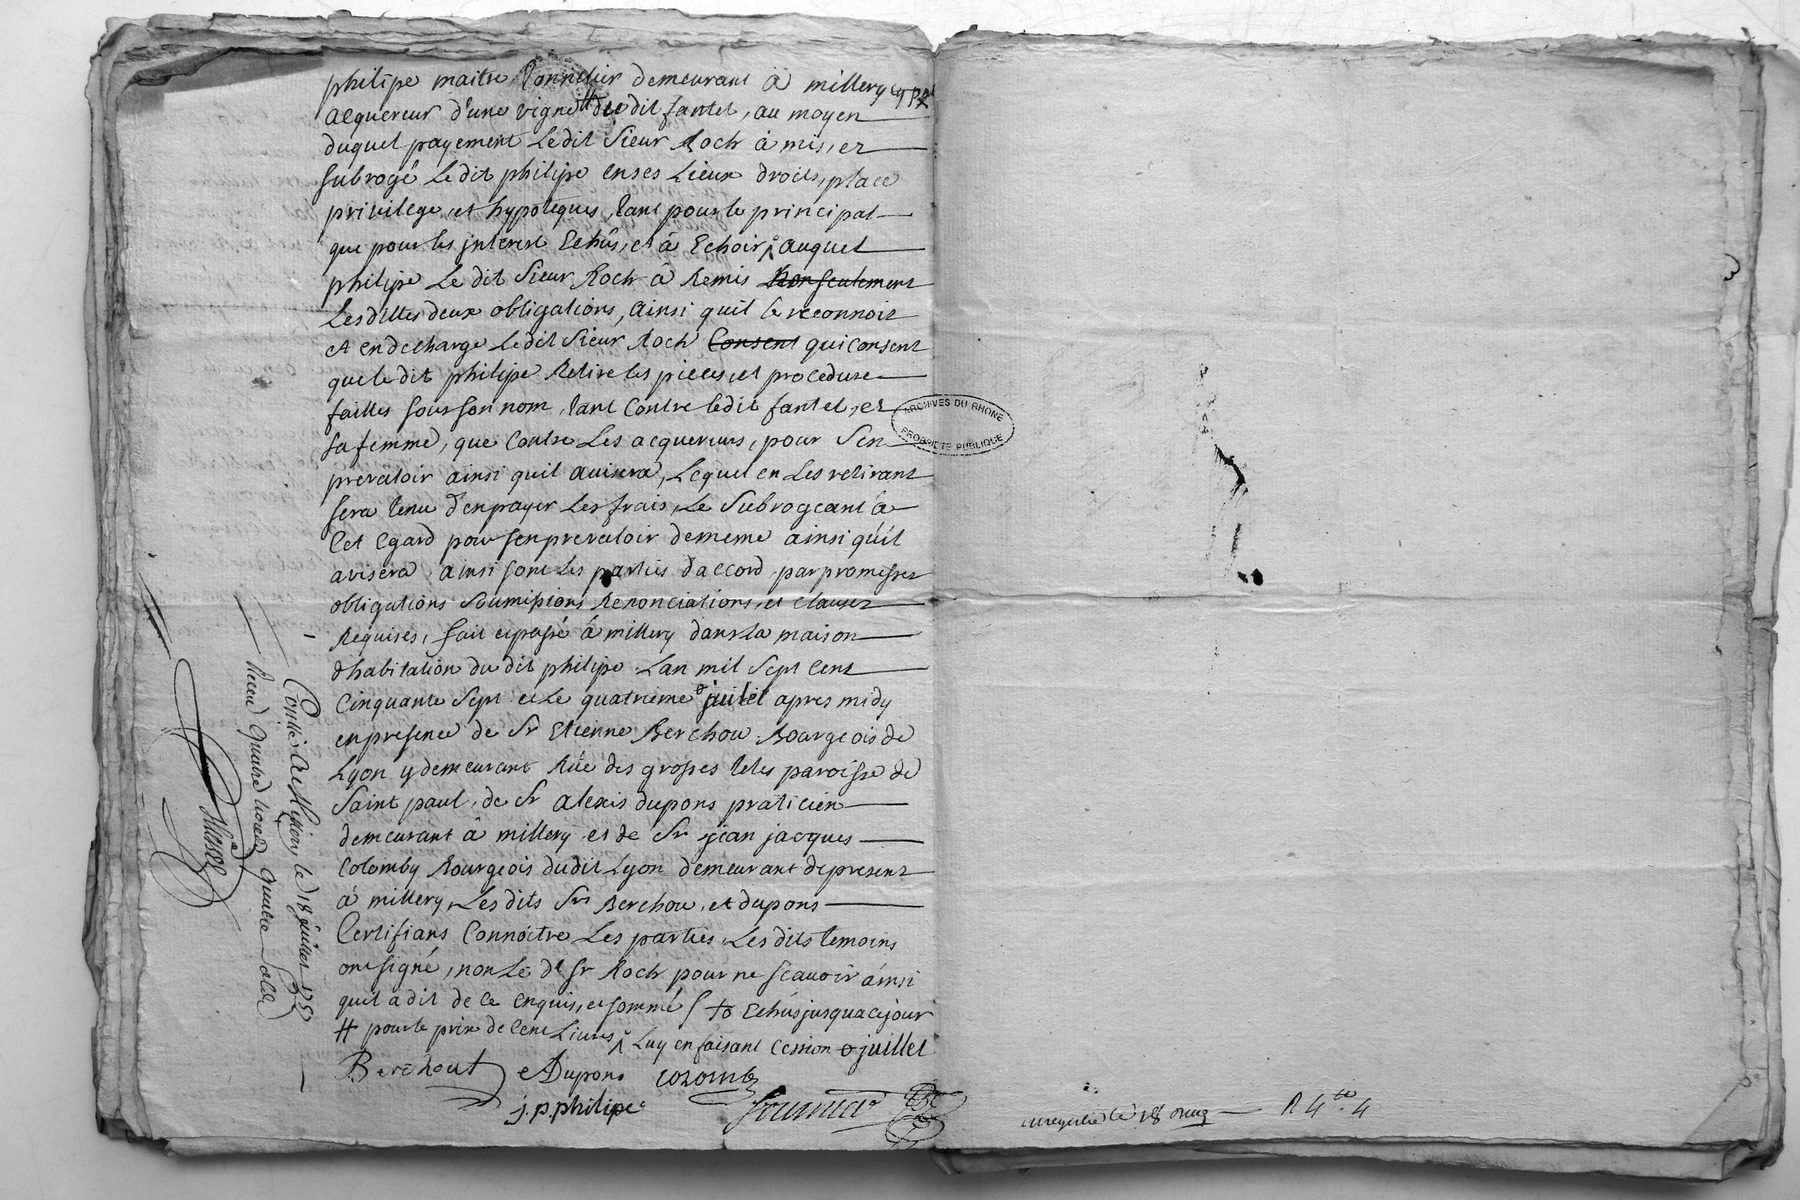 philipe maitre tonnelier demeurant à millery
acquereur d'une vigne # du dit fantet, au moyen
duquel payement ledit sieur Roch à mis, et
subrogé le dit philipe en ses lieux droits, place
privilege, et hypoteques, tant pour le principal
que pour les jnterest Echûs, et à Echoir, auquel
philipe le dit sieur Roch à Remis Non seulement
les dittes deux obligations, ainsi quil le reconnoit
et en decharge ledit sieur Roch Consent qui consent
que le dit philipe Retire les pieces, et procedure
faittes sous son nom, tant contre ledit fantet, et
sa femme, que contre les acquereurs, pour s'en
prevaloir ainsi quil avisera, lequel en les retirant
sera tenu d'en payer les frais, le subrogeant à
cet egard pour sen prevaloir de meme ainsi qu'il
avisera, ainsi sont les parties d'accord par promesses
obligations soumissions Renonciations, et clauses
Requises, fait et passé à millery dans la maison
d'habitation du dit philipe lan mil sept cent
cinquante sept et le quatrieme juilet apres midy
en presence de Sr Etienne Berchou Bourgeois de
Lyon y demeurant Rüe des grosses tetes paroisse de
saint paul, de Sr alexis dupons praticien
demeurant à millery et de Sr jean jacques
Colomby Bourgeois dudit Lyon demeurant de present
à millery, les dits Srs Berchou, et dupons
Certifians Connoitre les parties, les dits temoins
ont signé, non le dt Sr Roch pour ne scauoir ainsi
quil a dit de ce enquis, et sommé Echûs jusqua ce jour
# pour le prix de cent Livres Luy en faisant cession juillet
Berchout Dupons colomby
j. p. philipe
Conllé à Millery le 18 juillet 1757
Receu quatre livres quatre sols
ARCHIVES DU RHONE
PROPRIÉTÉ PUBLIQUE
le 18 R 4 tt. 4